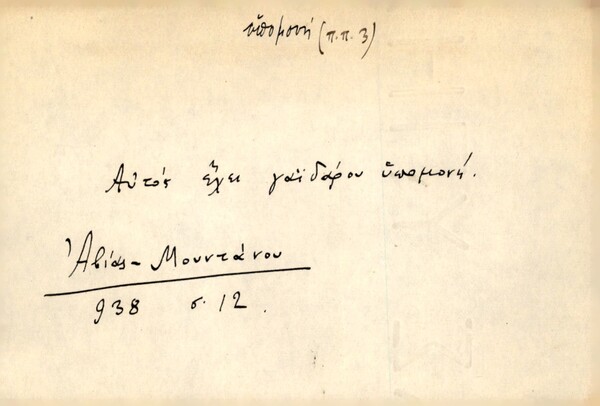 ὑπομονή (π.π. 3)
Αὐτὸς ἔχει γαϊδάρου ὑπομονή.
Ἀβία - Μουντάνου
938 σ. 12.